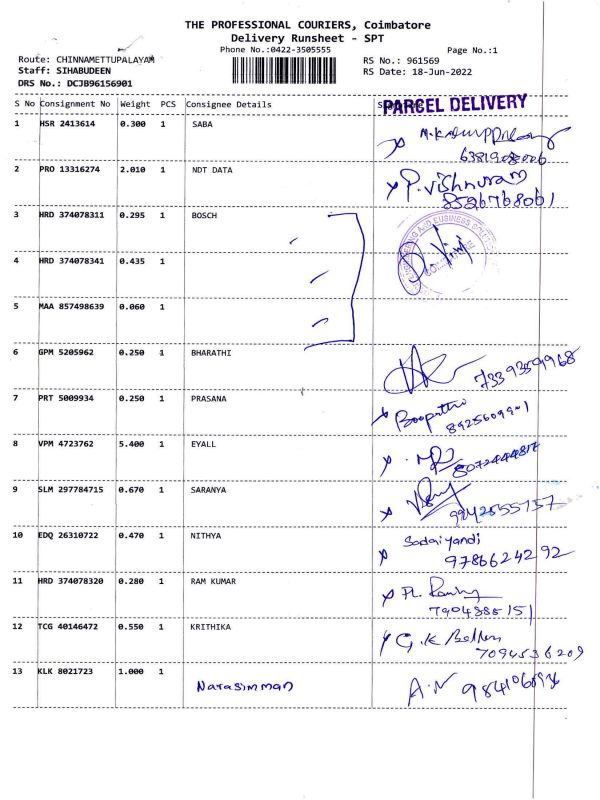 THE PROFESSIONAL COURIERS, Coimbatore
Delivery Runsheet - SPT
Phone No.:0422-3505555 Page No.:1
Route: CHINNAMETTUPALAYAM RS No.: 961569
Staff: SIHABUDEEN RS Date: 18-Jun-2022
DRS No.: DCJB96156901
PARCEL DELIVERY
S No Consignment No Weight PCS Consignee Details
1 HSR 2413614 0.300 1 SABA
2 PRO 13316274 2.010 1 NDT DATA P. Vishnuram
8526768061
3 HRD 374078311 0.295 1 BOSCH
4 HRD 374078341 0.435 1
5 MAA 857498639 0.060 1
6 GPM 5205962 0.250 1 BHARATHI 7339359968
7 PRT 5009934 0.250 1 PRASANA
8 VPM 4723762 5.400 1 EYALL
8072444817
9 SLM 297784715 0.670 1 SARANYA
10 EDQ 26310722 0.470 1 NITHYA Sadaiyandi
9786624292
11 HRD 374078320 0.280 1 RAM KUMAR
7904385151
12 TCG 40146472 0.550 1 KRITHIKA G.K
7094536209
13 KLK 8021723 1.000 1 Narasimman A.N